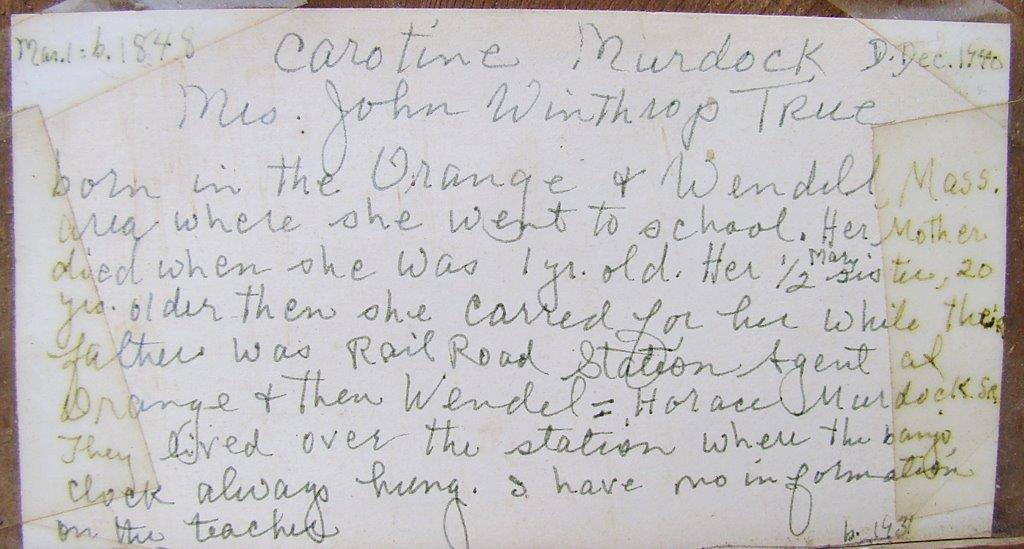 Mar. 1 = b. 1848 Carotine Murdock D. Dec. 1940
Mrs. John Winthrop True
born in the Orange & Wendell, Mass.
area where she went to school. Her Mother
died when she was 1 yr. old. Her 1/2 Mary sister, 20
yrs. older then she carred for her while their
father was Rail Road Station Agent at
Orange & then Wendel = Horace Murdock Sr.
They lived over the station where the banjo
clock always hung. I have no information
on the teacher